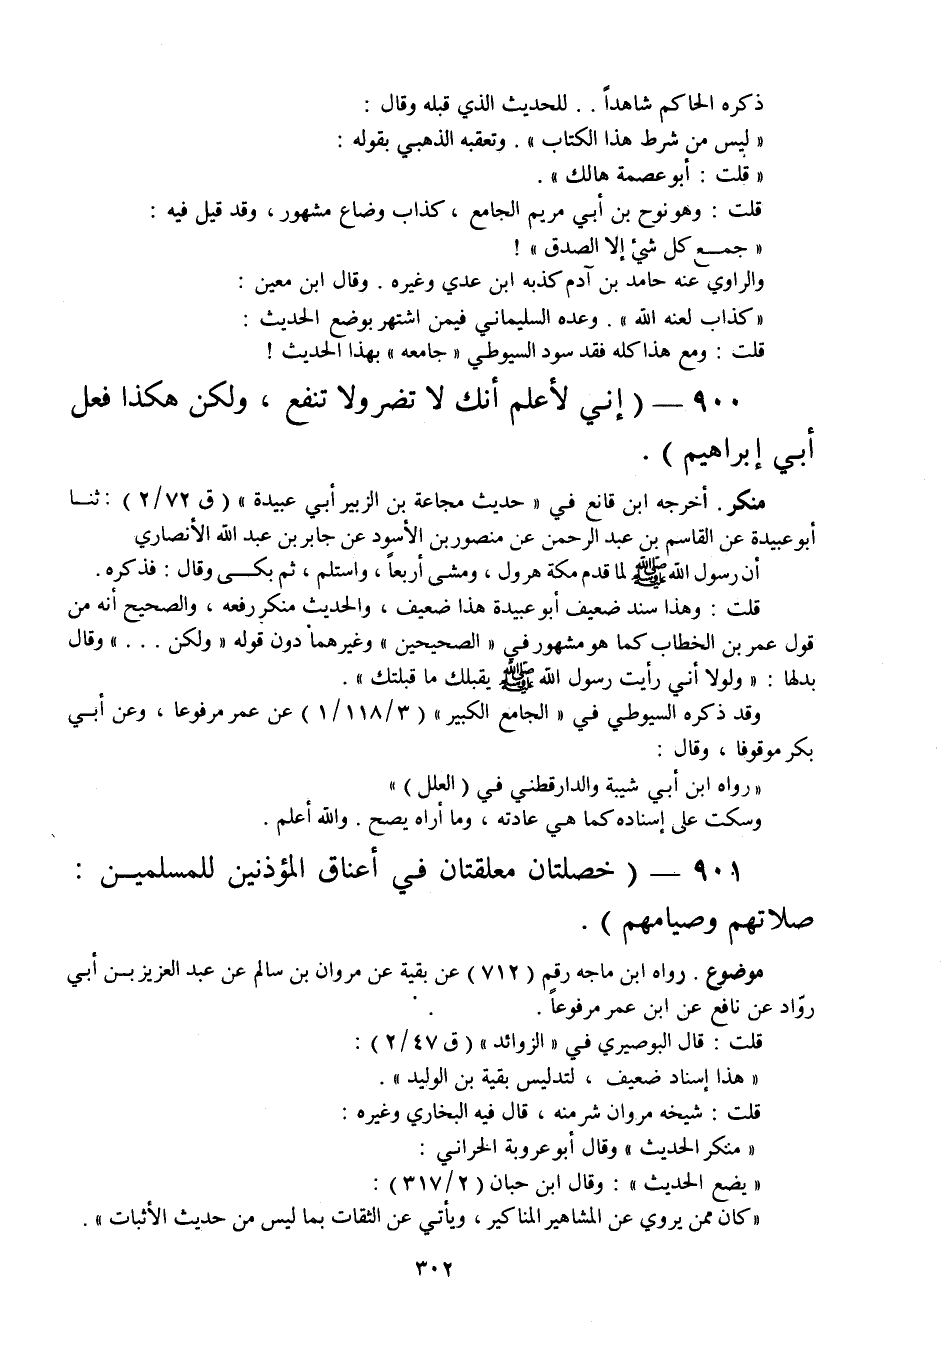 ذكره الحاكم شاهداً . . للحديث الذي قبله وقال :
« ليس من شرط هذا الكتاب » . وتعقبه الذهبي بقوله :
« قلت : أبو عصمة هالك » .
قلت : وهو نوح بن أبي مريم الجامع ، كذاب وضاع مشهور ، وقد قيل فيه :
« جمع كل شئ إلا الصدق » !
والراوي عنه حامد بن آدم كذبه ابن عدي وغيره . وقال ابن معين :
« كذاب لعنه الله » . وعده السليماني فيمن اشتهر بوضع الحديث :
قلت : ومع هذا كله فقد سود السيوطي « جامعه » بهذا الحديث !
٩٠٠ — ( إني لأعلم أنك لا تضر ولا تنفع ، ولكن هكذا فعل
أبي إبراهيم ) .
منكر . أخرجه ابن قانع في « حديث مجاعة بن الزبير أبي عبيدة » ( ق ٢/٧٢ ) : ثنا
أبو عبيدة عن القاسم بن عبد الرحمن عن منصور بن الأسود عن جابر بن عبد الله الأنصاري
أن رسول الله ﷺ لما قدم مكة هرول ، ومشى أربعاً ، واستلم ، ثم بكى وقال : فذكره .
قلت : وهذا سند ضعيف أبو عبيدة هذا ضعيف ، والحديث منكر رفعه ، والصحيح أنه من
قول عمر بن الخطاب كما هو مشهور في « الصحيحين » وغيرهما دون قوله « ولكن . . . » وقال
بدلها : « ولولا أني رأيت رسول الله ﷺ يقبلك ما قبلتك » .
وقد ذكره السيوطي في « الجامع الكبير » ( ١/١١٨/٣ ) عن عمر مرفوعا ، وعن أبي
بكر موقوفا ، وقال :
« رواه ابن أبي شيبة والدارقطني في ( العلل ) »
وسكت على إسناده كما هي عادته ، وما أراه يصح . والله أعلم .
٩٠١ — ( خصلتان معلقتان في أعناق المؤذنين للمسلمين :
صلاتهم وصيامهم ) .
موضوع . رواه ابن ماجه رقم ( ٧١٢ ) عن بقية عن مروان بن سالم عن عبد العزيز بن أبي
روّاد عن نافع عن ابن عمر مرفوعاً .
قلت : قال البوصيري في « الزوائد » ( ق ٢/٤٧ ) :
« هذا إسناد ضعيف ، لتدليس بقية بن الوليد » .
قلت : شيخه مروان شر منه ، قال فيه البخاري وغيره :
« منكر الحديث » وقال أبو عروبة الحراني :
« يضع الحديث » : وقال ابن حبان ( ٣١٧/٢ ) :
« كان ممن يروي عن المشاهير المناكير ، ويأتي عن الثقات بما ليس من حديث الأثبات » .
٣٠٢